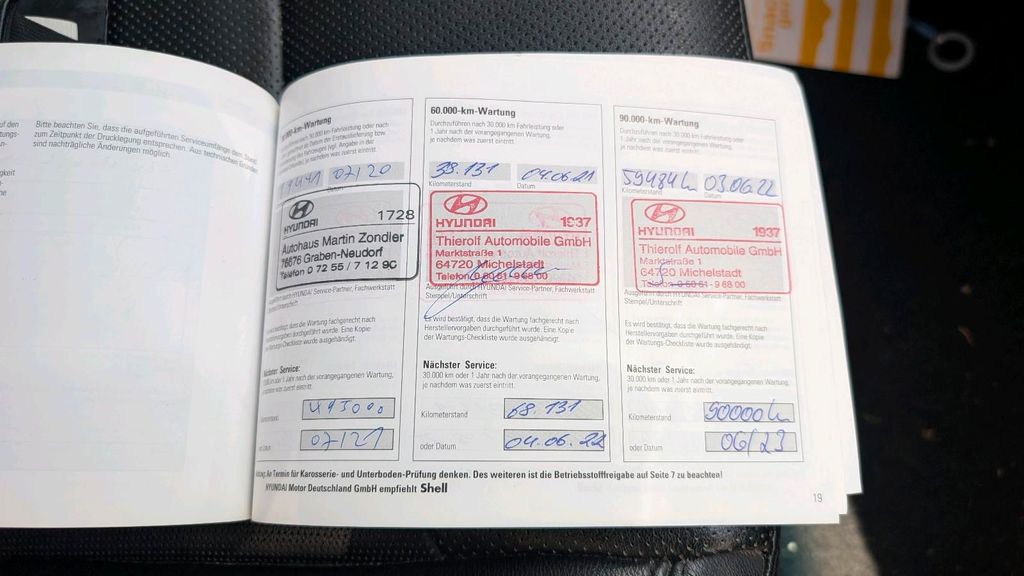 Bitte beachten Sie, dass die aufgeführten Serviceumfänge dem Stand
zum Zeitpunkt der Drucklegung entsprechen. Aus technischen Gründen
sind nachträgliche Änderungen möglich.
-km-Wartung
07/20
Datum
HYUNDAI 1728
Autohaus Martin Zondler
76676 Graben-Neudorf
Telefon 0 72 55 / 7 12 90
HYUNDAI Service-Partner, Fachwerkstatt
Stempel/Unterschrift
Es wird bestätigt, dass die Wartung fachgerecht nach
Herstellervorgaben durchgeführt wurde. Eine Kopie
der Wartungs-Checkliste wurde ausgehändigt.
Nächster Service:
30.000 km oder 1 Jahr nach der vorangegangenen Wartung,
je nachdem was zuerst eintritt.
07/21
60.000-km-Wartung
Durchzuführen nach 30.000 km Fahrleistung oder
1 Jahr nach der vorangegangenen Wartung,
je nachdem was zuerst eintritt.
38.131 04.06.21
Kilometerstand Datum
HYUNDAI 1937
Thierolf Automobile GmbH
Marktstraße 1
64720 Michelstadt
Telefon 0 60 61 - 9 68 00
Ausgeführt durch HYUNDAI Service-Partner, Fachwerkstatt
Stempel/Unterschrift
Es wird bestätigt, dass die Wartung fachgerecht nach
Herstellervorgaben durchgeführt wurde. Eine Kopie
der Wartungs-Checkliste wurde ausgehändigt.
Nächster Service:
30.000 km oder 1 Jahr nach der vorangegangenen Wartung,
je nachdem was zuerst eintritt.
Kilometerstand 68.131
oder Datum 04.06.22
90.000-km-Wartung
Durchzuführen nach 30.000 km Fahrleistung oder
1 Jahr nach der vorangegangenen Wartung,
je nachdem was zuerst eintritt.
59484 03.06.22
Kilometerstand Datum
HYUNDAI 1937
Thierolf Automobile GmbH
Marktstraße 1
64720 Michelstadt
Telefon 0 60 61 - 9 68 00
Ausgeführt durch HYUNDAI Service-Partner, Fachwerkstatt
Stempel/Unterschrift
Es wird bestätigt, dass die Wartung fachgerecht nach
Herstellervorgaben durchgeführt wurde. Eine Kopie
der Wartungs-Checkliste wurde ausgehändigt.
Nächster Service:
30.000 km oder 1 Jahr nach der vorangegangenen Wartung,
je nachdem was zuerst eintritt.
Kilometerstand
oder Datum 06/23
An Termin für Karosserie- und Unterboden-Prüfung denken. Des weiteren ist die Betriebsstofffreigabe auf Seite 7 zu beachten!
HYUNDAI Motor Deutschland GmbH empfiehlt Shell
19